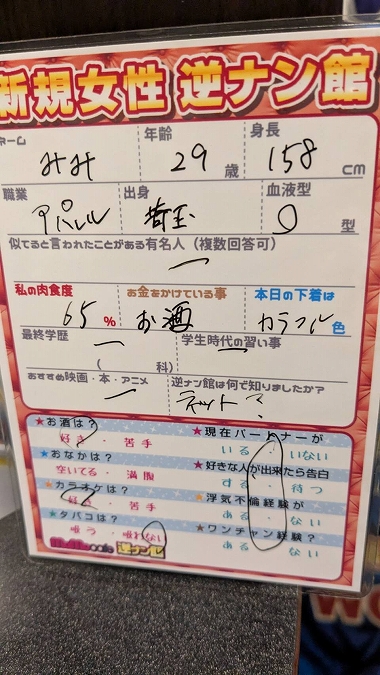 新規女性 逆ナン館
ネーム 年齢 身長
みみ 29歳 158cm
職業 出身 血液型
アパレル 埼玉 O型
似てると言われたことがある有名人（複数回答可）
ー
私の肉食度 お金をかけている事 本日の下着は
65% お酒 カラフル色
最終学歴 学生時代の習い事
ー ー
（ 科）
おすすめ映画・本・アニメ 逆ナン館は何で知りましたか？
ー ネット？
★お酒は？ ★現在パートナーが
好き・苦手 いる・いない
★おなかは？ ★好きな人が出来たら告白
空いてる・満腹 する・待つ
★カラオケは？ ★浮気不倫経験が
好き・苦手 ある・ない
★タバコは？ ★ワンチャン経験？
吸う・吸わない ある・ない
cafe 逆ナン館